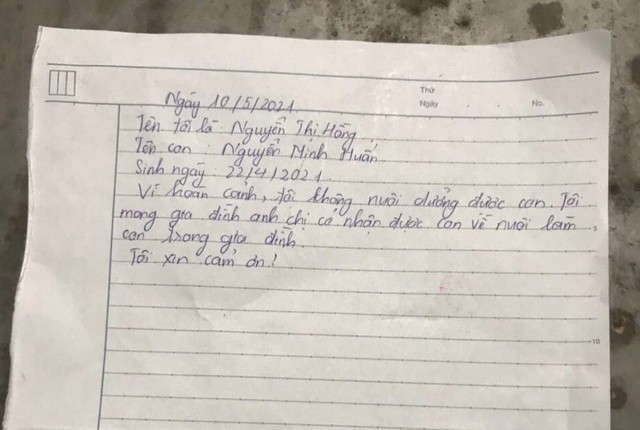 Thứ
Ngày . . No.
Ngày 10/5/2021.
Tên tôi là: Nguyễn Thị Hằng
Tên con : Nguyễn Minh Huấn
Sinh ngày : 22/4/2021.
Vì hoàn cảnh, tôi không nuôi dưỡng được con. Tôi
mong gia đình anh chị cố nhận được con về nuôi làm 5
con trong gia đình.
Tôi xin cảm ơn!
10